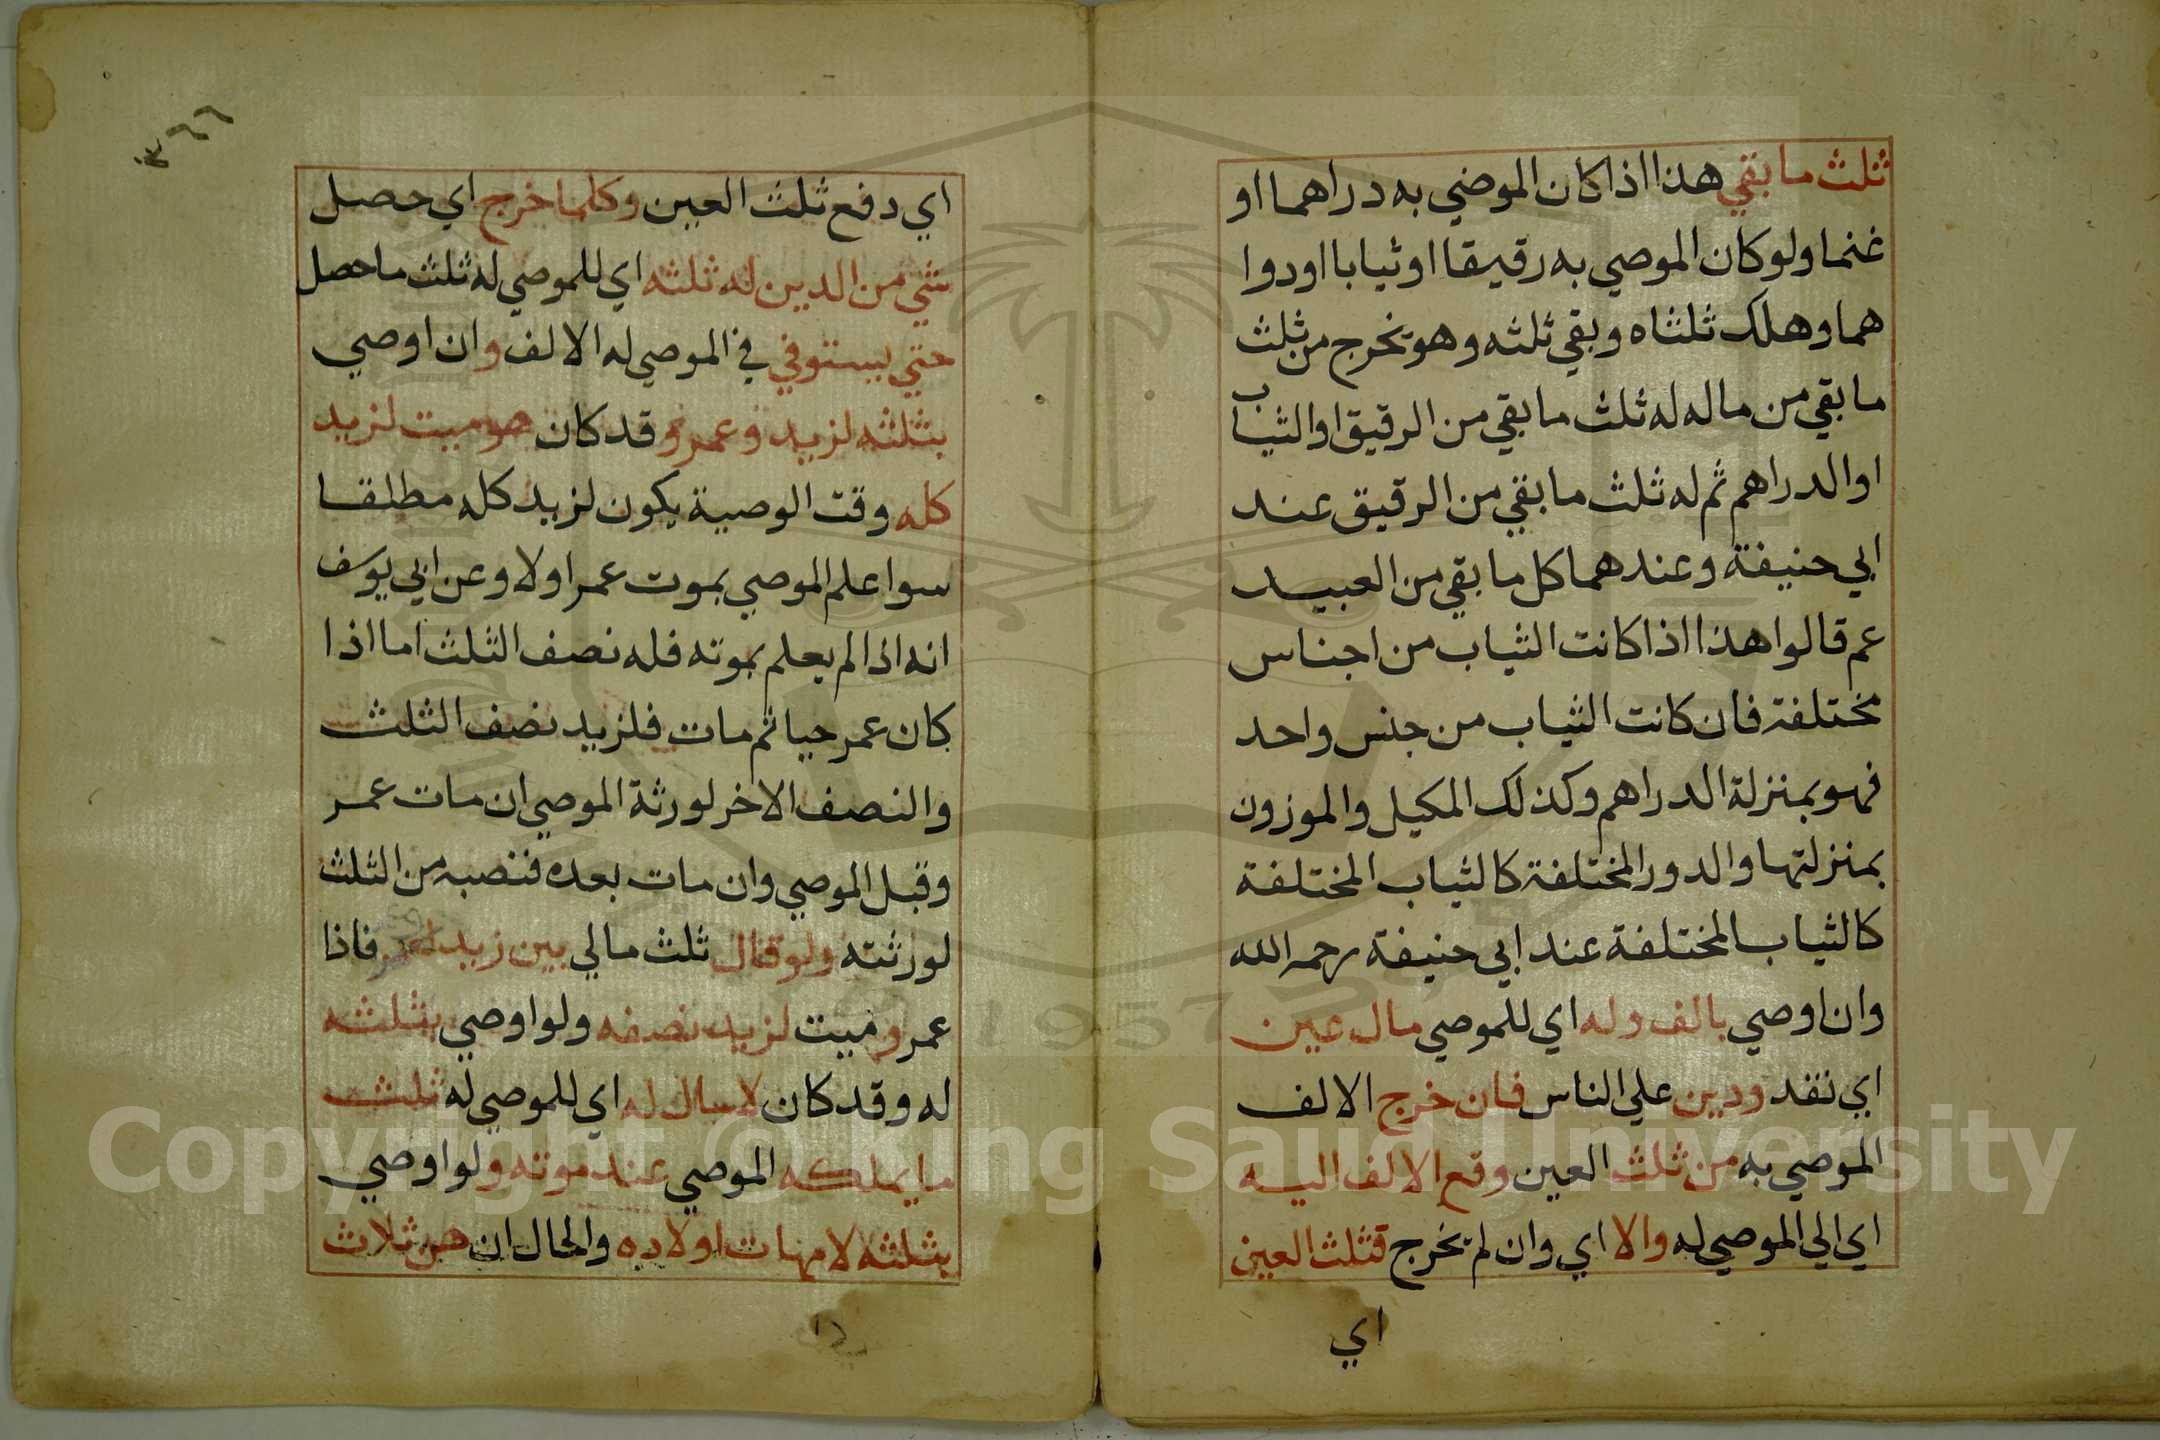 ثلث ما بقي هذا اذا كان الموصي به دراهما او
غنما ولو كان الموصي به رقيقا او ثيابا او دوا
هما وهلك ثلثاه وبقي ثلثه وهو تخرج من ثلث
ما بقي من ماله له ثلث ما بقي من الرقيق او الثياب
او الدراهم ثم له ثلث ما بقي من الرقيق عند
ابي حنيفة وعندهما كل ما بقي من العبيد
عم قالوا هذا اذا كانت الثياب من اجناس
مختلفة فان كانت الثياب من جنس واحد
فهو بمنزلة الدراهم وكذلك المكيل والموزون
بمنزلتها والدور المختلفة كالثياب المختلفة
كالثياب المختلفة عند ابي حنيفة رحمه الله
وان اوصي بالف وله اي للموصي مال عين
اي نقد ودين علي الناس فان خرج الالف
الموصي به من ثلث العين وقع الالف اليه
اي الي الموصي له والا اي وان لم تخرج فثلث العين
اي
٣٦٦
اي دفع ثلث العين وكلما خرج اي حصل
شي من الدين له ثلثه اي للموصي له ثلث ما حصل
حتي يستوفي في الموصي له الالف وان اوصي
بثلثه لزيد وعمرو وقد كان هو ميت لزيد
كله وقت الوصية يكون لزيد كله مطلقا
سوا علم الموصي بموت عمر اولا وعن ابي يوسف
انه اذا لم يعلم بموته فله نصف الثلث اما اذا
كان عمر حيا ثم مات فلزيد نصف الثلث
والنصف الاخر لورثة الموصي ان مات عمر
وقبل الموصي وان مات بعده فنصبه من الثلث
لورثته ولو قال ثلث مالي بين زيد فاذا
عمرو ميت لزيد نصفه ولو اوصي بثلثه
له وقد كان لا مال له اي للموصي له ثلث
ما يملكه الموصي عند موته ولو اوصي
بثلثه لامهات اولاده والحال ان هن ثلاث
Copyright © King Saud University
1957